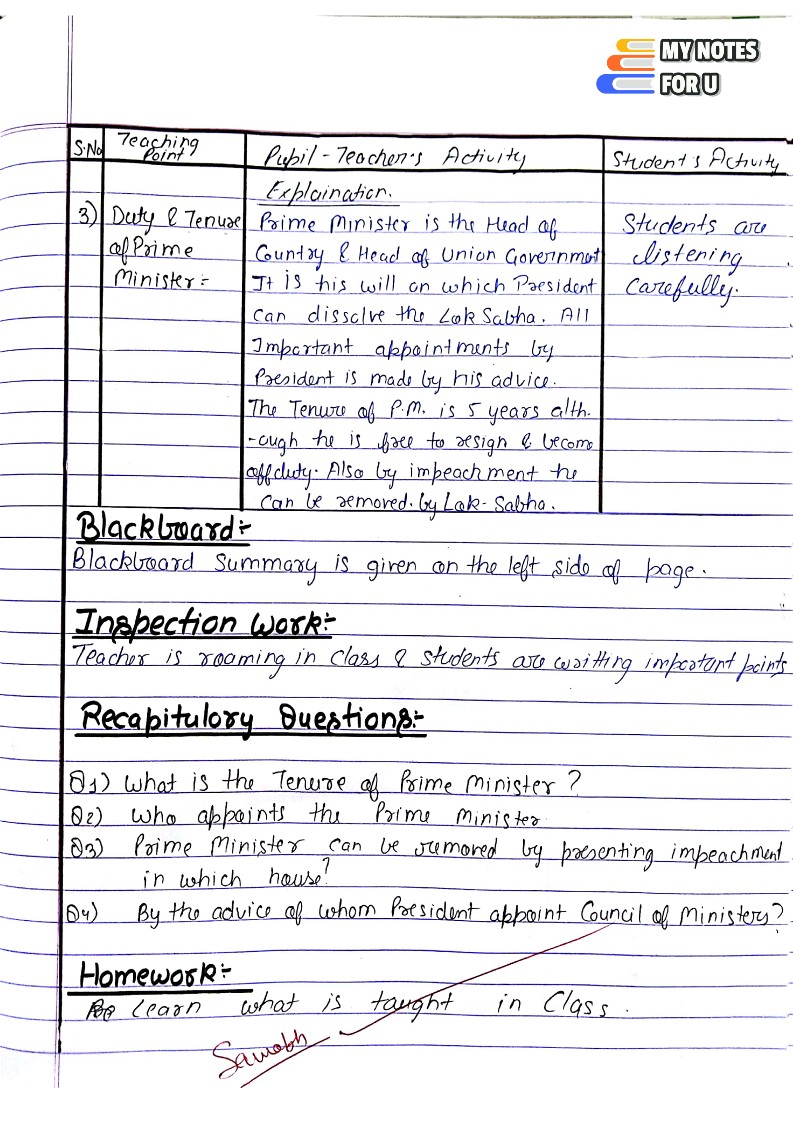 MY NOTES
FOR U
S.No Teaching Point Pupil-Teacher's Activity Student's Activity
Explaination.
3) Duty & Tenure Prime Minister is the Head of Students are
of Prime Country & Head of Union Government listening
Minister:- It is his will on which President carefully.
can dissolve the Lok Sabha. All
Important appointments by
President is made by his advice.
The Tenure of P.M. is 5 years alth.
-ough he is free to resign & become
offduty. Also by impeachment he
can be removed. by Lok-Sabha.
Blackboard:-
Blackboard Summary is given on the left side of page.
Inspection Work:-
Teacher is roaming in Class & students are writting important points
Recapitulory Questions:-
Q1) What is the Tenure of Prime Minister?
Q2) Who appoints the Prime Minister
Q3) Prime Minister can be removed by presenting impeachment
in which house?
Q4) By the advice of whom President appoint Council of Ministers?
Homework:-
Learn what is taught in Class.
Saurabh